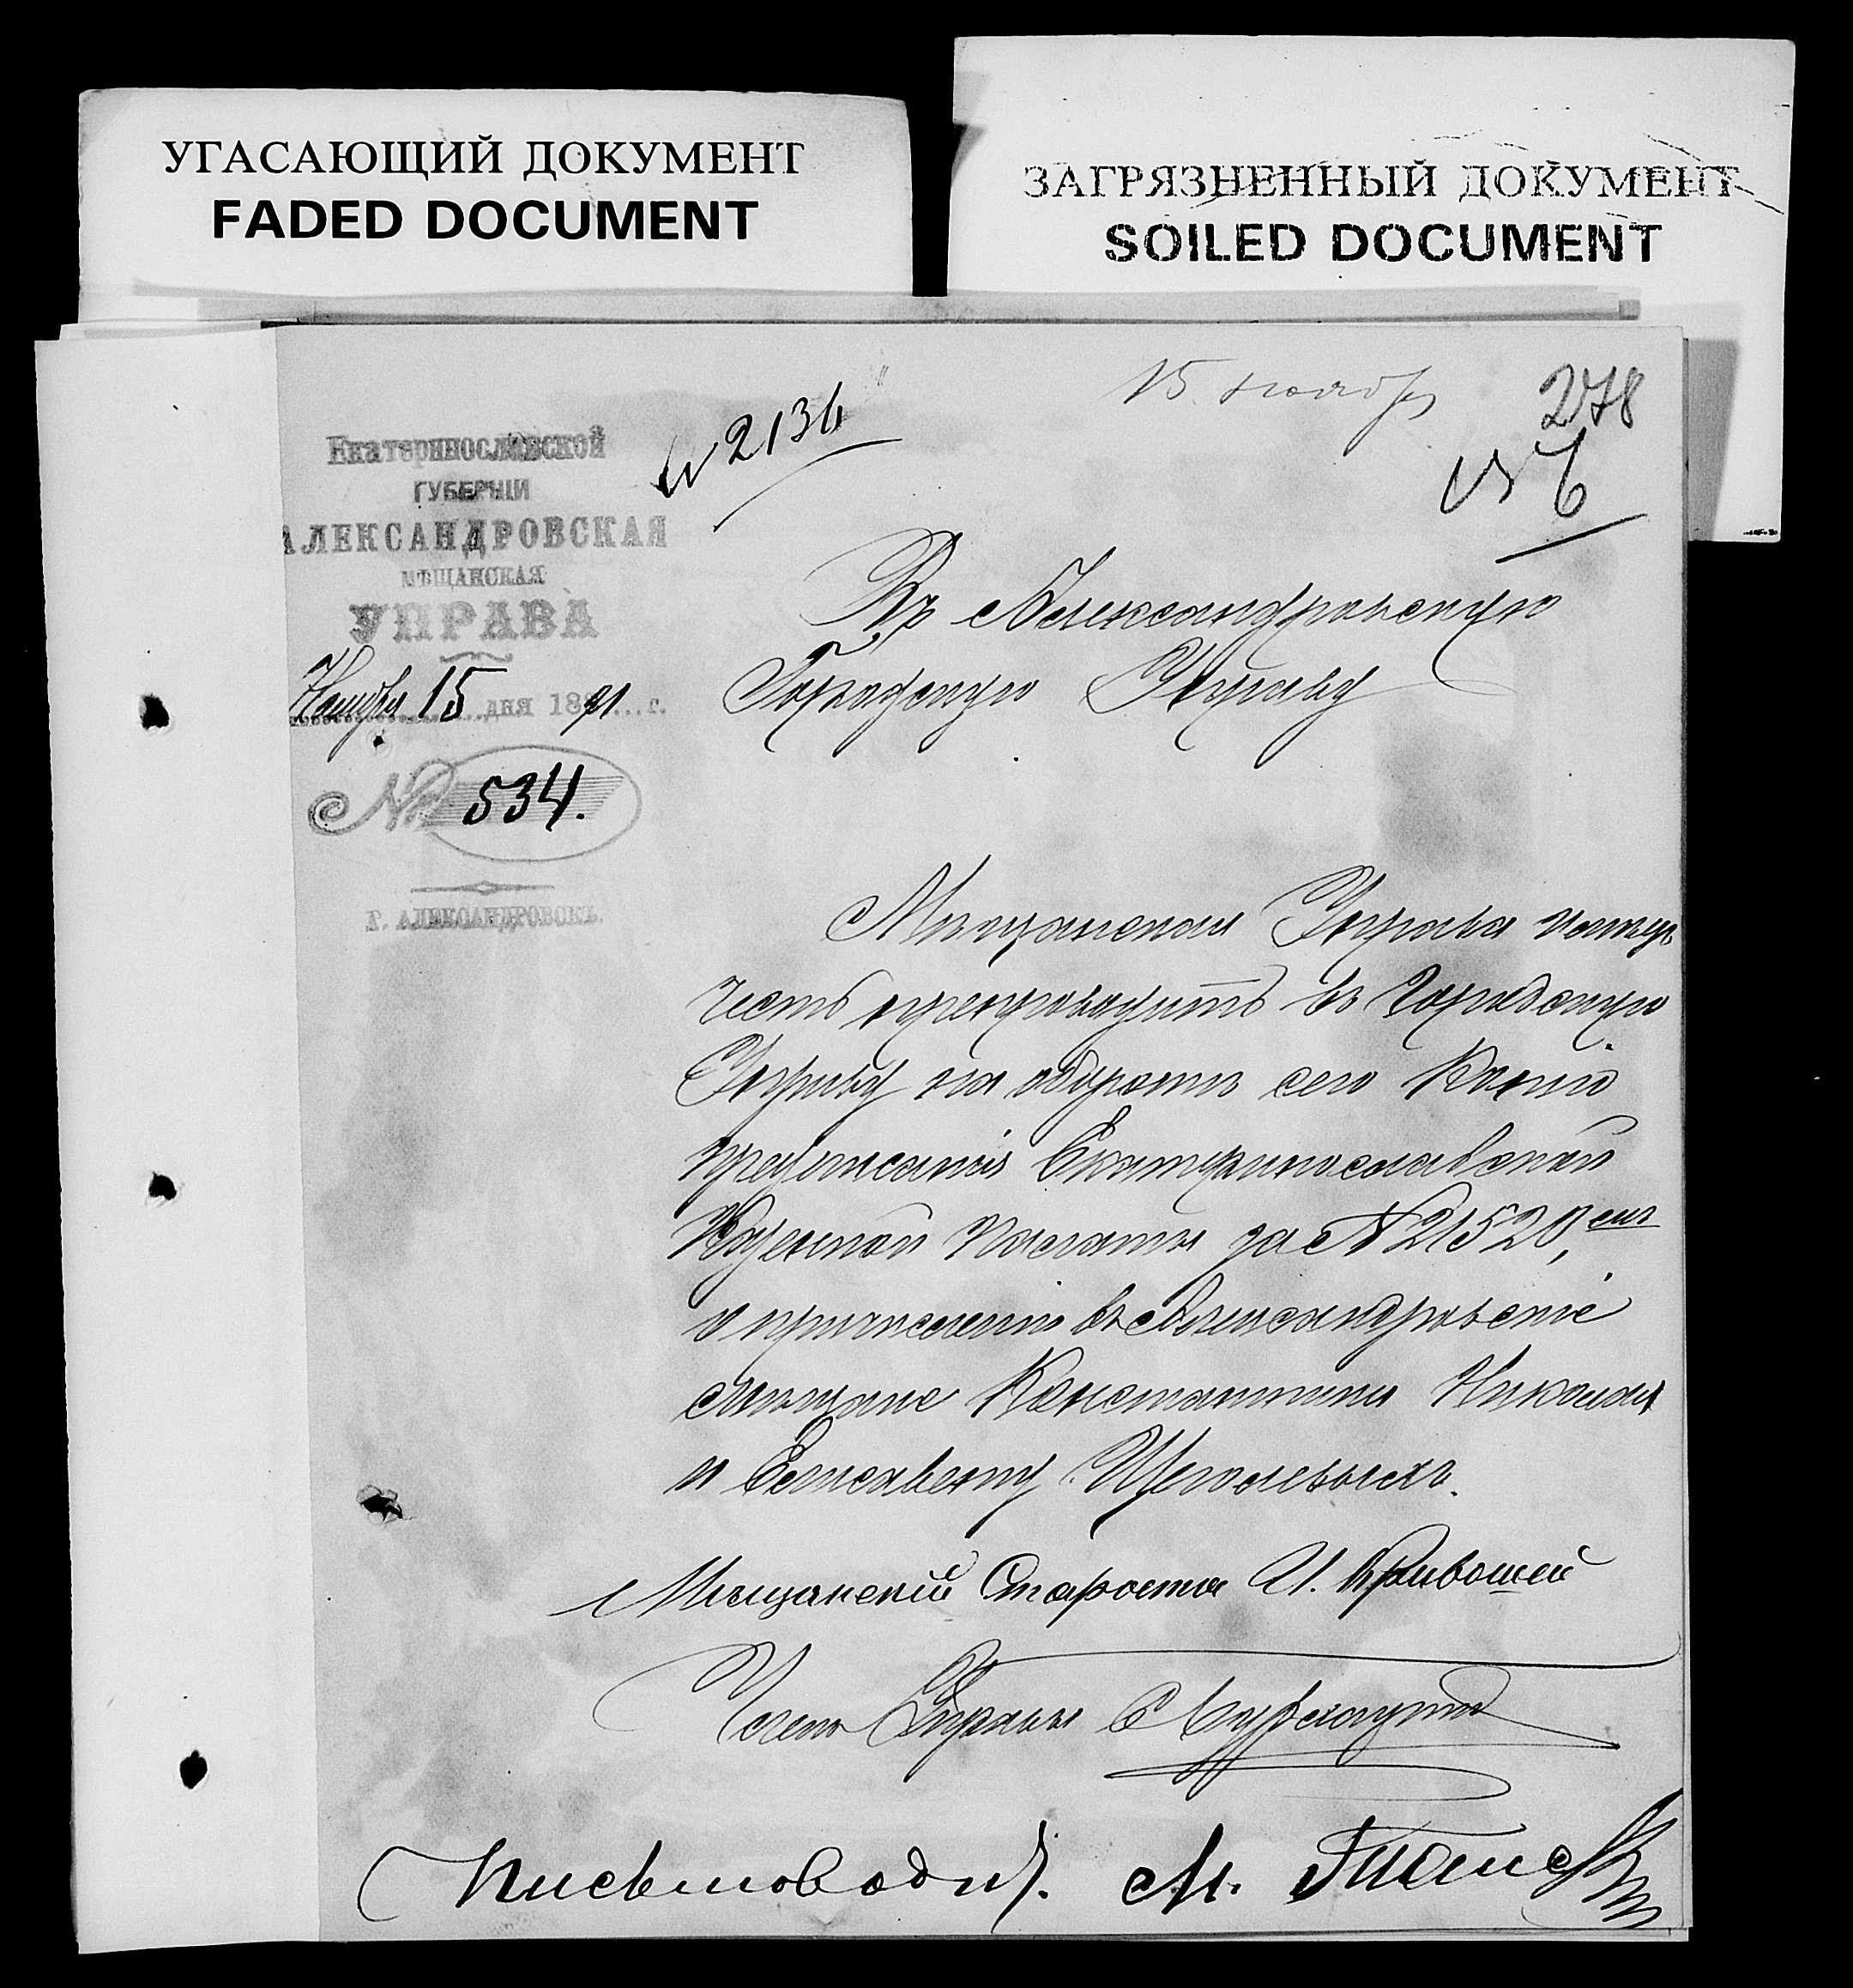 УГАСАЮЩИЙ ДОКУМЕНТ
FADED DOCUMENT
ЗАГРЯЗНЕННЫЙ ДОКУМЕНТ
SOILED DOCUMENT
15 ноября
278
№ 2134
№ 6
Екатеринославской
ГУБЕРНІИ
АЛЕКСАНДРОВСКАЯ
МѢЩАНСКАЯ
УПРАВА
Ноября 15 дня 1891 г.
№ 534.
Г. АЛЕКСАНДРОВСКЪ.
Въ Александровскую
Городскую Управу
Мѣщанская Управа имѣетъ
честь препроводить въ Городскую
Управу на оборотѣ сего Копію
предписанія Екатеринославской
Казенной Палаты за № 21520,
о причисленіи въ Александровскіе
мѣщане Константина Николая
и Елисавету Щеголевыхъ.
Мѣщанскій Староста И. Кривошей
Членъ Управы
Письмоводит. М.